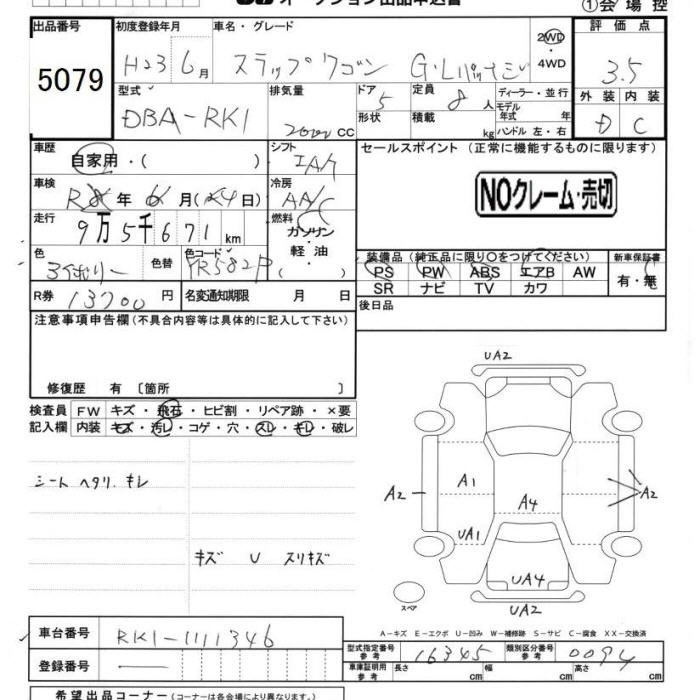 ①会場控
出品番号
5079
初度登録年月
H23 6月
車名・グレード
ステップワゴン G・Lパッケージ
2WD
・
4WD
評価点
3.5
外装 内装
D C
型式
DBA-RK1
排気量
2000 CC
ドア 5
形状
定員 8 人
積載 kg
ディーラー・並行
モデル年式 年
ハンドル 左・右
車歴
自家用・( )
シフト
IA/T
車検
年 6月(24日)
冷房
AA/C
走行
9万5千671 km
燃料
ガソリン
・
軽油
( )
セールスポイント(正常に機能するものに限ります)
NOクレーム・売切
色
色替
色コード
YR582P
装備品(純正品に限り○をつけてください)
PS PW ABS エアB AW
SR ナビ TV カワ
新車保証書
有・無
R券 13700円
名変通知期限 月 日
後日品
注意事項申告欄(不具合内容等は具体的に記入して下さい)
修復歴 有〔箇所 〕
検査員記入欄
FW キズ・飛石・ヒビ割・リペア跡・×要
内装 キズ・汚レ・コゲ・穴・スレ・キレ・破レ
シート ヘタリ、キレ
キズ U スリキズ
UA2
A2
A1
A4
A2
UA1
UA4
UA2
スペア
A-キズ E-エクボ U-凹み W-補修跡 S-サビ C-腐食 XX-交換済
車台番号
RK1-1111346
登録番号
型式指定番号 参考 16345
類別区分番号 参考 0094
車庫証明用 参考 長さ 幅 高さ
希望出品コーナー(コーナーは各会場により異なります)